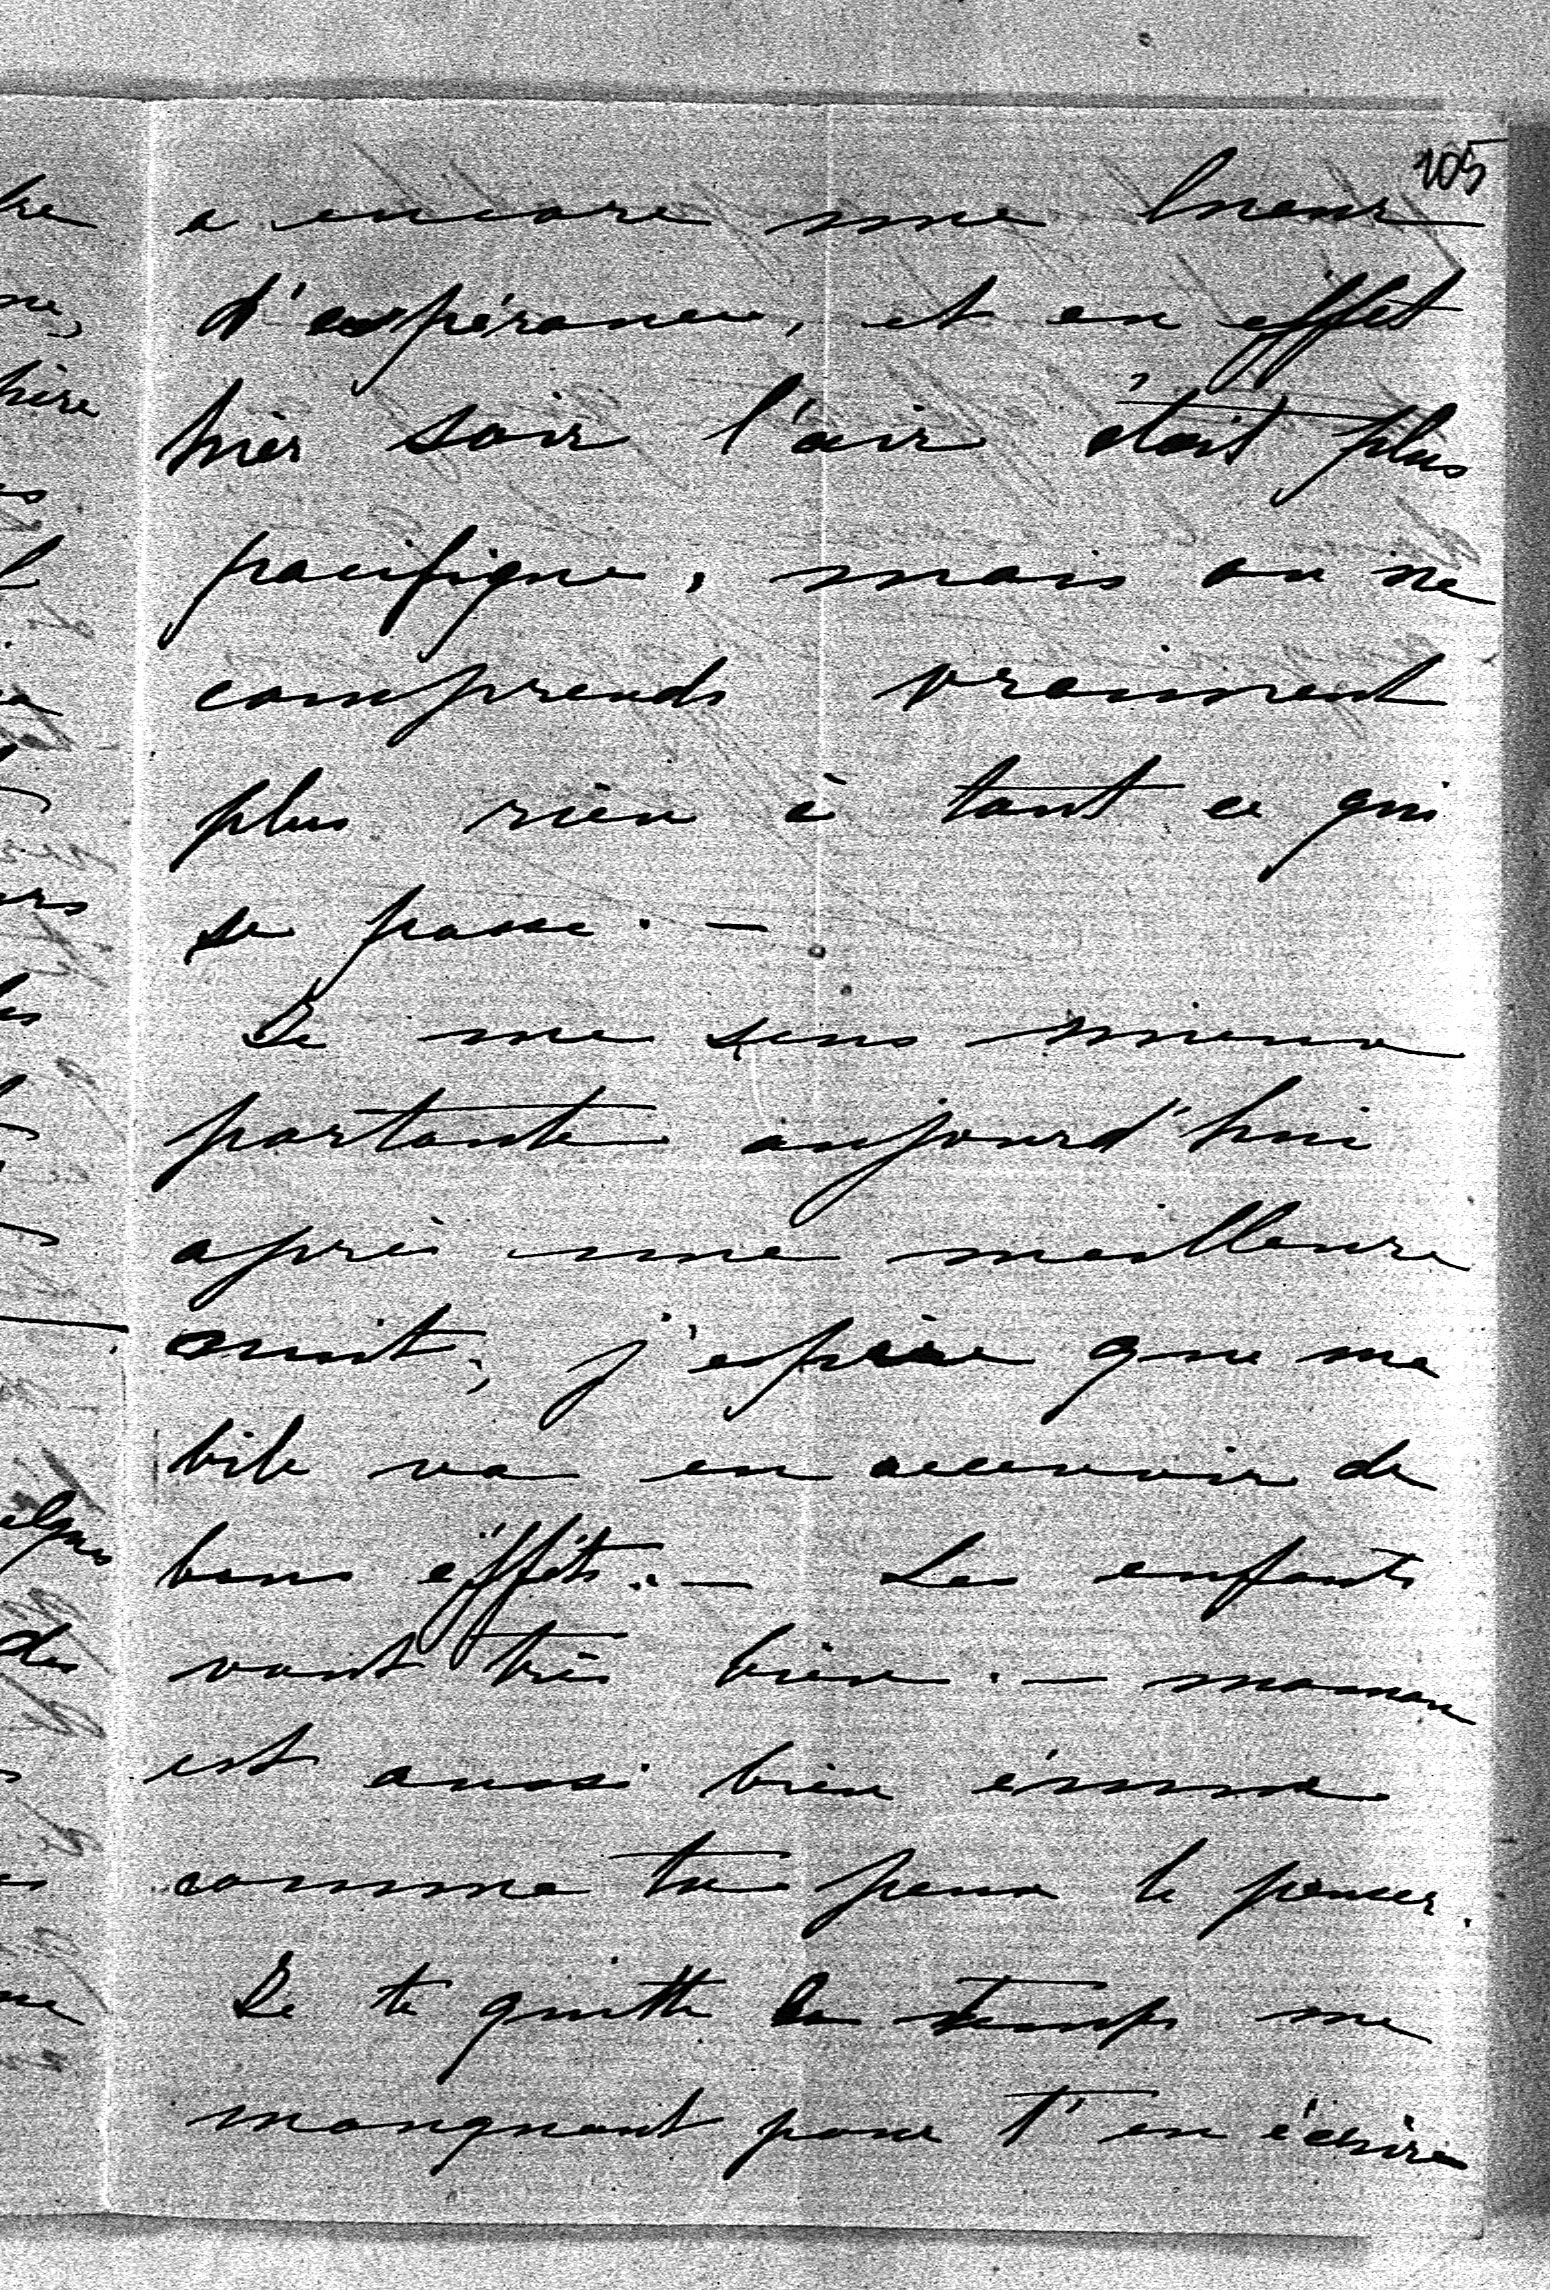 105
a encore une lueur
d'espérance, et en effet
hier soir l'air était plus
pacifique, mais on ne
comprends vraiment
plus rien à tout ce qui
se passe. —
Je me sens mieux
portante aujourd'hui
après une meilleure
nuit; j'espère que ma
bile va en recevoir de
bons effets. — Les enfants
vont très bien. — maman
est aussi bien émue
comme tu peux le penser.
Je te quitte le temps me
manquant pour t'en écrire